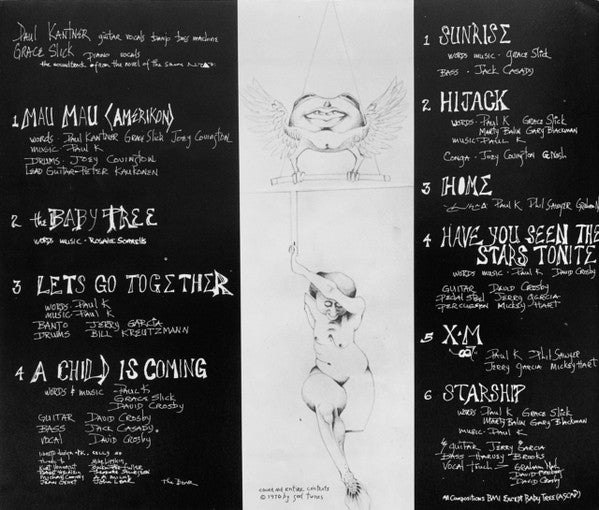 PAUL KANTNER guitar vocals banjo bass machine
GRACE SLICK piano vocals
the soundtrack from the novel of the same
1 MAU MAU (AMERIKON)
WORDS · PAUL KANTNER GRACE SLICK JOEY COVINGTON
MUSIC · PAUL K
DRUMS · JOEY COVINGTON
LEAD GUITAR · PETER KAUKONEN
2 the BABY TREE
WORDS MUSIC · ROSALIE SORRELLS
3 LETS GO TOGETHER
WORDS · PAUL K
MUSIC · PAUL K
BANJO JERRY GARCIA
DRUMS BILL KREUTZMANN
4 A CHILD IS COMING
WORDS & MUSIC PAUL K
GRACE SLICK
DAVID CROSBY
GUITAR DAVID CROSBY
BASS JACK CASADY
VOCAL DAVID CROSBY
thanks to
The Bear
cover and entire contents
© 1970 by
1 SUNRISE
WORDS MUSIC · GRACE SLICK
BASS · JACK CASADY
2 HIJACK
WORDS · PAUL K GRACE SLICK
MARTY BALIN GARY BLACKMAN
MUSIC PAUL K
CONGA · JOEY COVINGTON
3 HOME
PAUL K PHIL SAWYER GRAHAM
4 HAVE YOU SEEN THE
STARS TONITE
WORDS MUSIC · PAUL K DAVID CROSBY
GUITAR DAVID CROSBY
PEDAL STEEL JERRY GARCIA
PERCUSSION MICKEY HART
5 X·M
PAUL K PHIL SAWYER
JERRY GARCIA MICKEY HART
6 STARSHIP
WORDS PAUL K GRACE SLICK
MARTY BALIN GARY BLACKMAN
MUSIC · PAUL K
GUITAR JERRY GARCIA
BASS HARVEY BROOKS
VOCAL GRAHAM NASH
DAVID CROSBY
All Compositions BMI EXCEPT BABY TREE (ASCAP)